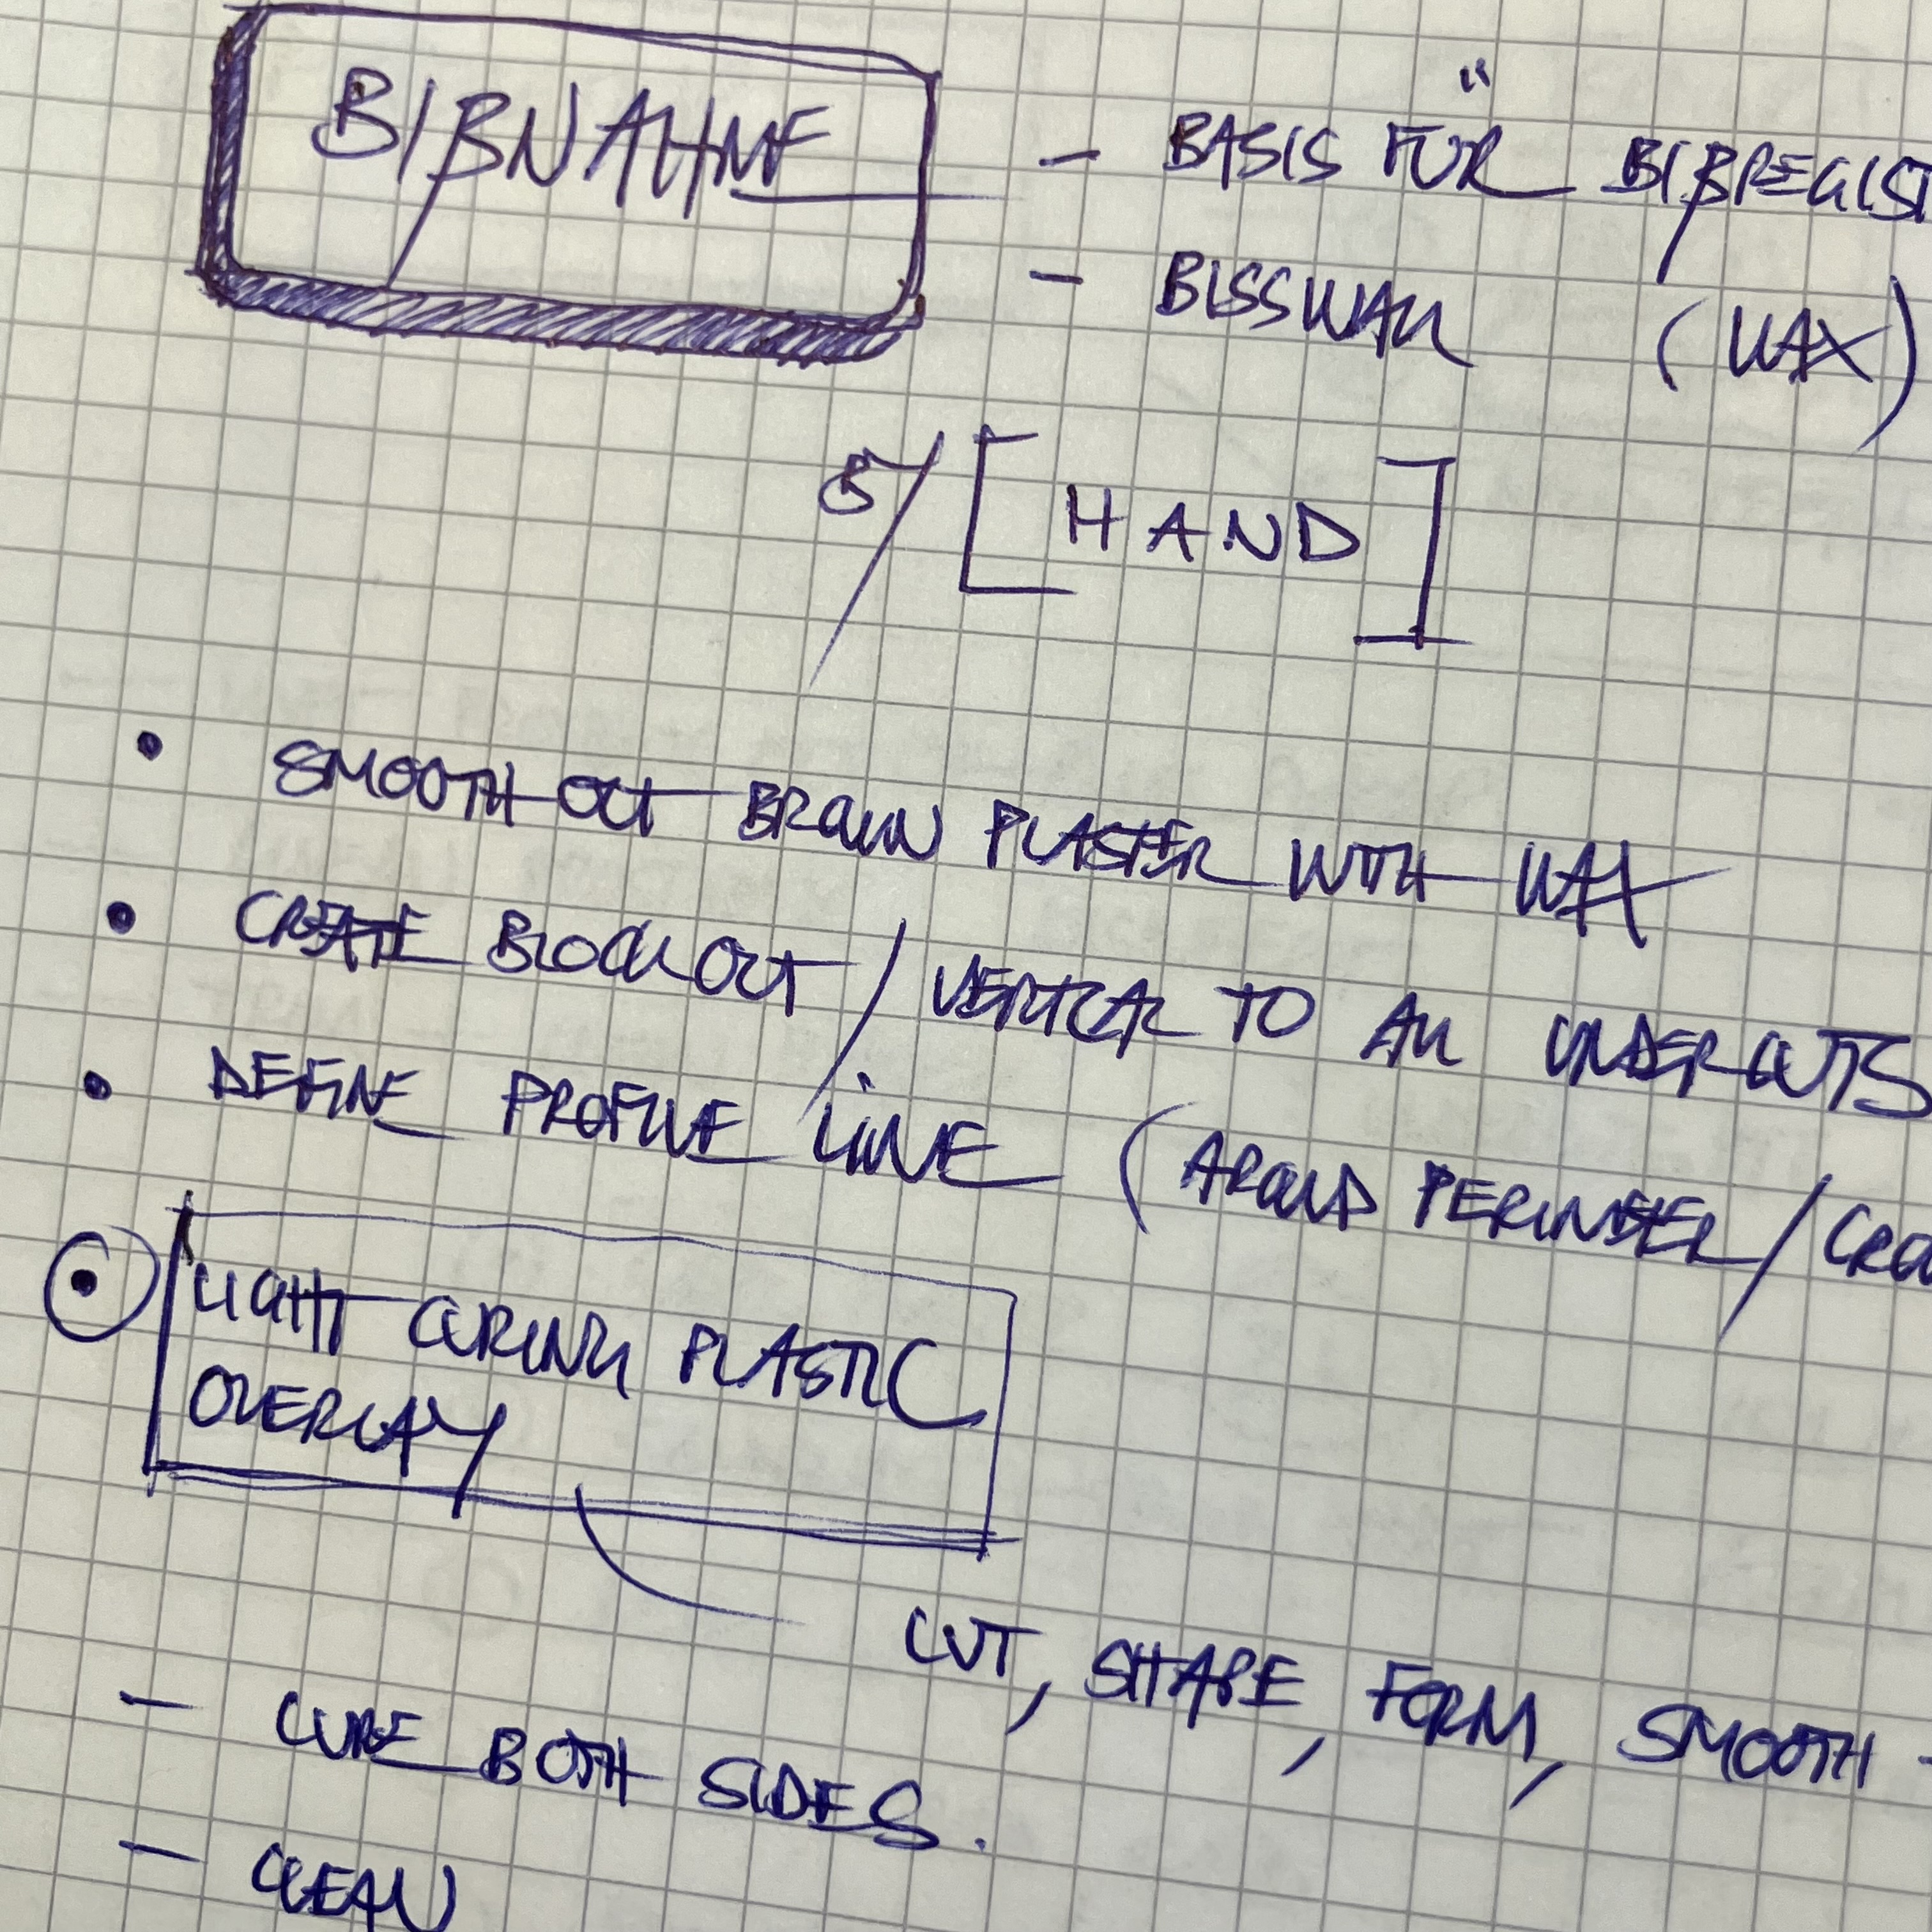 BIßNAHME
- BASIS FÜR BIßREGIST
- BISSWALL (WAX)
B/ [HAND]
• SMOOTH OUT BROWN PLASTER WITH WAX
• CREATE BLOCKOUT / VERTICAL TO ALL UNDERCUTS
• DEFINE PROFILE LINE (AROUND PERIMETER / CRO
• LIGHT CURING PLASTIC
OVERLAY
CUT, SHAPE, FORM, SMOOTH -
- CURE BOTH SIDES.
- CLEAN